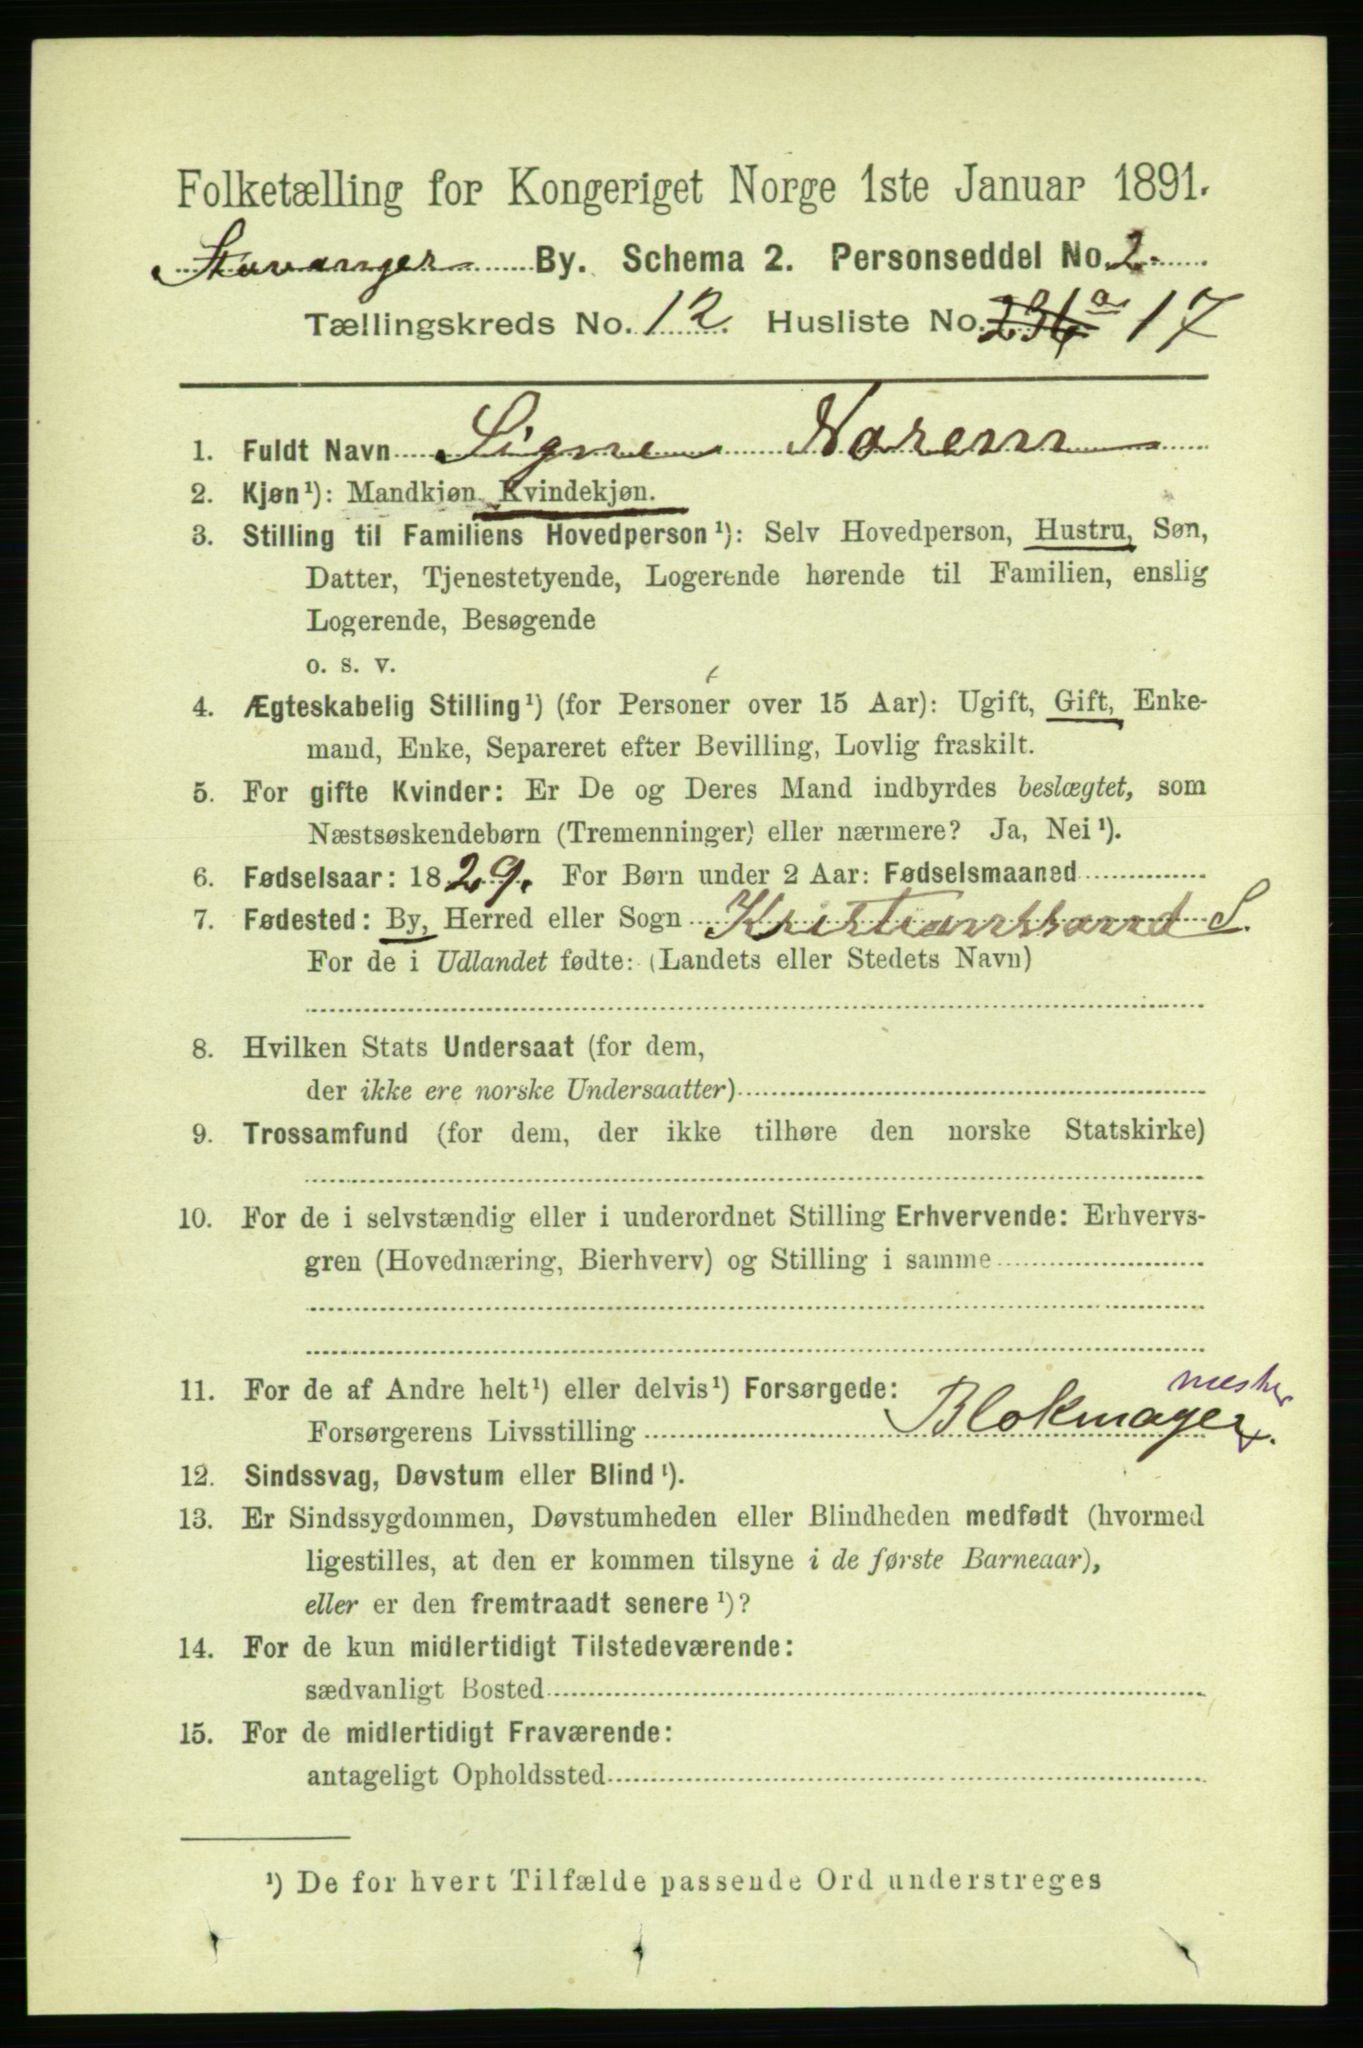 Folketælling for Kongeriget Norge 1ste Januar 1891.
Stavanger By. Schema 2. Personseddel No. 2.
Tællingskreds No. 12. Husliste No. 236a 17
1. Fuldt Navn Signe Narem
2. Kjøn¹): Mandkjøn, Kvindekjøn.
3. Stilling til Familiens Hovedperson¹): Selv Hovedperson, Hustru, Søn,
Datter, Tjenestetyende, Logerende hørende til Familien, enslig
Logerende, Besøgende
o. s. v.
4. Ægteskabelig Stilling¹) (for Personer over 15 Aar): Ugift, Gift, Enke-
mand, Enke, Separeret efter Bevilling, Lovlig fraskilt.
5. For gifte Kvinder: Er De og Deres Mand indbyrdes beslægtet, som
Næstsøskendebørn (Tremenninger) eller nærmere? Ja, Nei¹).
6. Fødselsaar: 1829. For Børn under 2 Aar: Fødselsmaaned
7. Fødested: By, Herred eller Sogn Kristianssand S.
For de i Udlandet fødte: (Landets eller Stedets Navn)
8. Hvilken Stats Undersaat (for dem,
der ikke ere norske Undersaatter)
9. Trossamfund (for dem, der ikke tilhøre den norske Statskirke)
10. For de i selvstændig eller i underordnet Stilling Erhvervende: Erhvervs-
gren (Hovednæring, Bierhverv) og Stilling i samme
11. For de af Andre helt¹) eller delvis¹) Forsørgede: mester
Forsørgerens Livsstilling Blokmager.
12. Sindssvag, Døvstum eller Blind¹).
13. Er Sindssygdommen, Døvstumheden eller Blindheden medfødt (hvormed
ligestilles, at den er kommen tilsyne i de første Barneaar),
eller er den fremtraadt senere¹)?
14. For de kun midlertidigt Tilstedeværende:
sædvanligt Bosted
15. For de midlertidigt Fraværende:
antageligt Opholdssted
¹) De for hvert Tilfælde passende Ord understreges